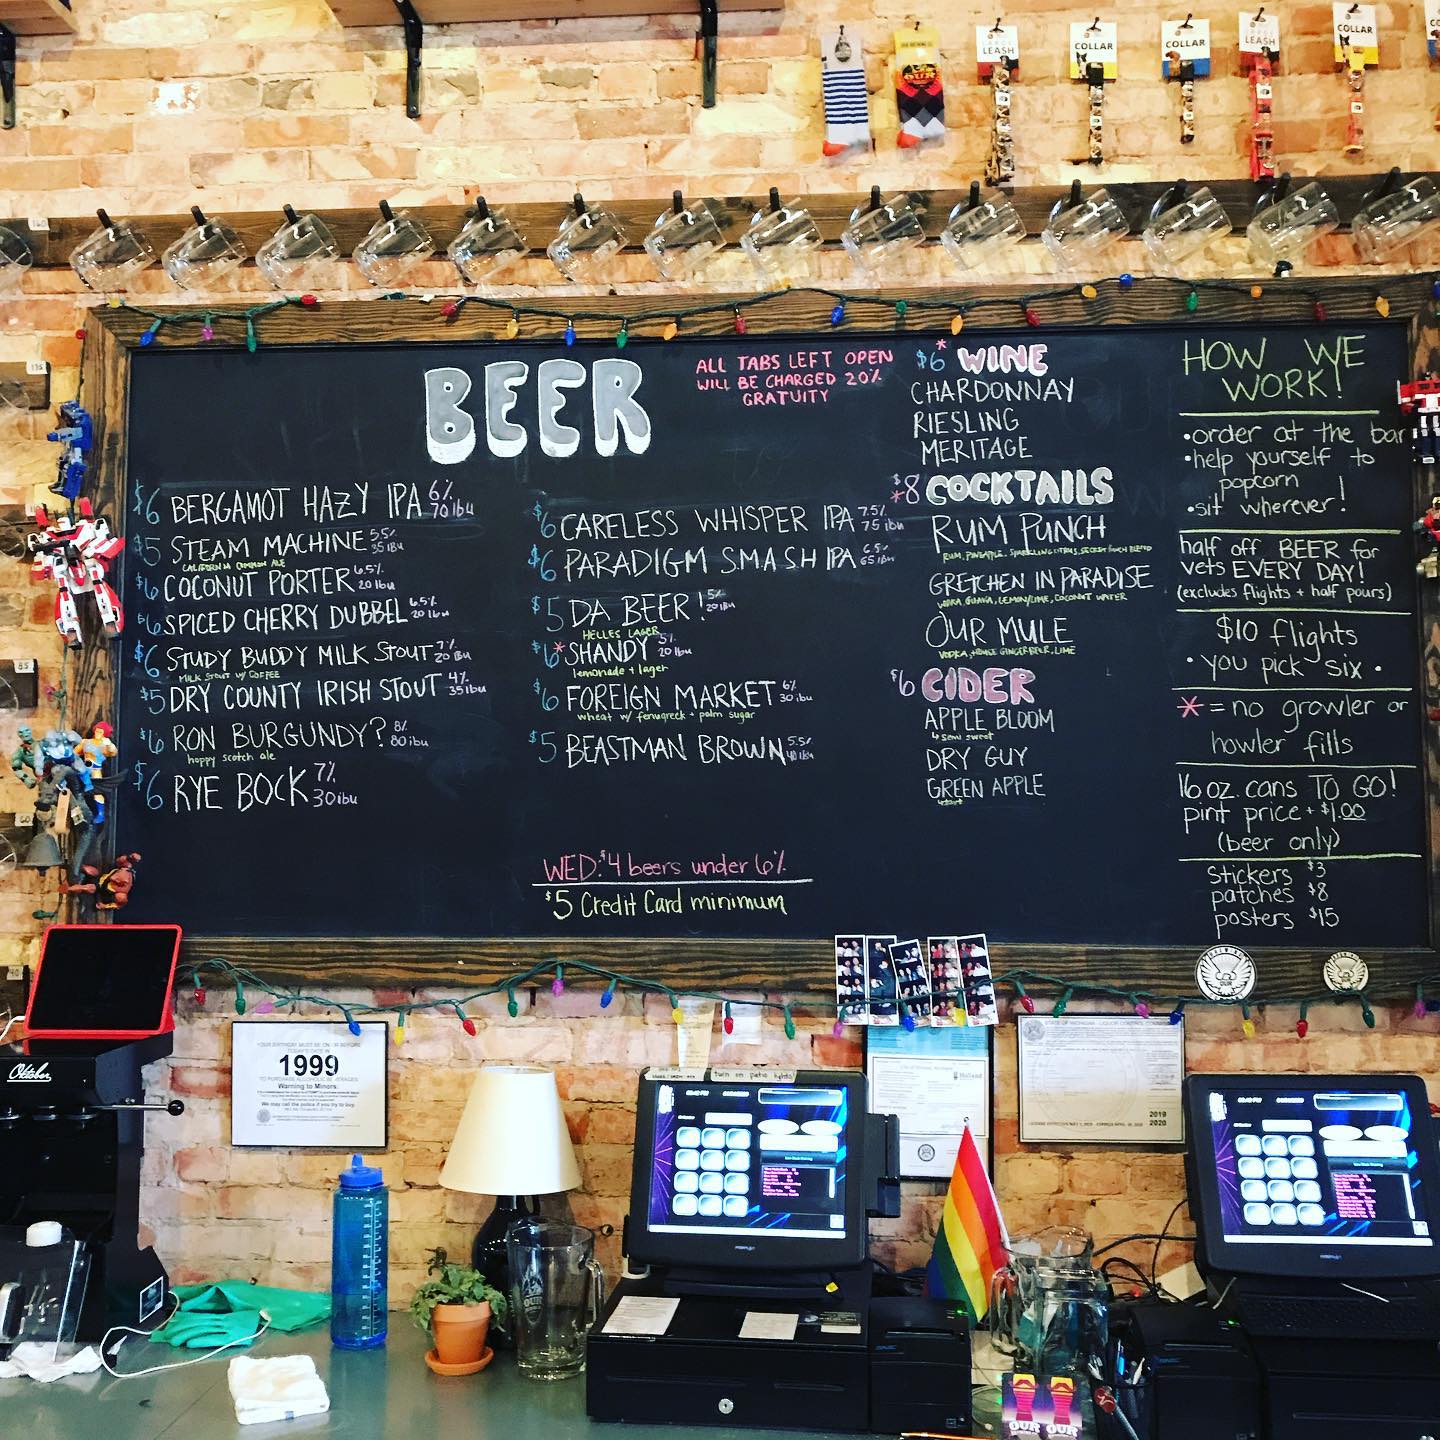 LEASH
COLLAR
COLLAR
LEASH
COLLAR
BEER
ALL TABS LEFT OPEN
WILL BE CHARGED 20%
GRATUITY
$6 BERGAMOT HAZY IPA 6% 70 ibu
$5 STEAM MACHINE 5.5% 35 IBU
CALIFORNIA COMMON ALE
$6 COCONUT PORTER 6.5% 20 ibu
$6 SPICED CHERRY DUBBEL 6.5% 20 ibu
$6 STUDY BUDDY MILK STOUT 7% 20 IBU
MILK STOUT W/ COFFEE
$5 DRY COUNTY IRISH STOUT 4% 35 ibu
$6 RON BURGUNDY? 8% 80 ibu
hoppy scotch ale
$6 RYE BOCK 7% 30 ibu
$6 CARELESS WHISPER IPA 7.5% 75 ibu
$6 PARADIGM SMASH IPA 6.5% 65 ibu
$5 DA BEER! 5% 20 IBU
HELLES LAGER
$6* SHANDY 5% 20 ibu
lemonade + lager
$6 FOREIGN MARKET 6% 30 ibu
wheat w/ fenugreek + palm sugar
$5 BEASTMAN BROWN 5.5% 40 ibu
WED: $4 beers under 6%
$5 Credit Card minimum
$6* WINE
CHARDONNAY
RIESLING
MERITAGE
$8* COCKTAILS
RUM PUNCH
RUM, PINEAPPLE, SPARKLING CITRUS, SECRET PUNCH BLEND
GRETCHEN IN PARADISE
VODKA, GUAVA, LEMON/LIME, COCONUT WATER
OUR MULE
VODKA, HOUSE GINGER BEER, LIME
$6 CIDER
APPLE BLOOM
semi sweet
DRY GUY
GREEN APPLE
tart
HOW WE
WORK!
• order at the bar
• help yourself to
popcorn
• sit wherever!
half off BEER for
vets EVERY DAY!
(excludes flights + half pours)
$10 flights
• you pick six •
* = no growler or
howler fills
16 oz. cans TO GO!
pint price + $1.00
(beer only)
stickers $3
patches $8
posters $15
Oktober
YOUR BIRTHDAY MUST BE ON OR BEFORE
TODAY'S DATE IN
1999
TO PURCHASE ALCOHOLIC BEVERAGES
Warning to Minors:
We may call the police if you try to buy.
turn on patio lights!
STATE OF MICHIGAN LIQUOR CONTROL
2019
2020
OUR
OUR
OUR